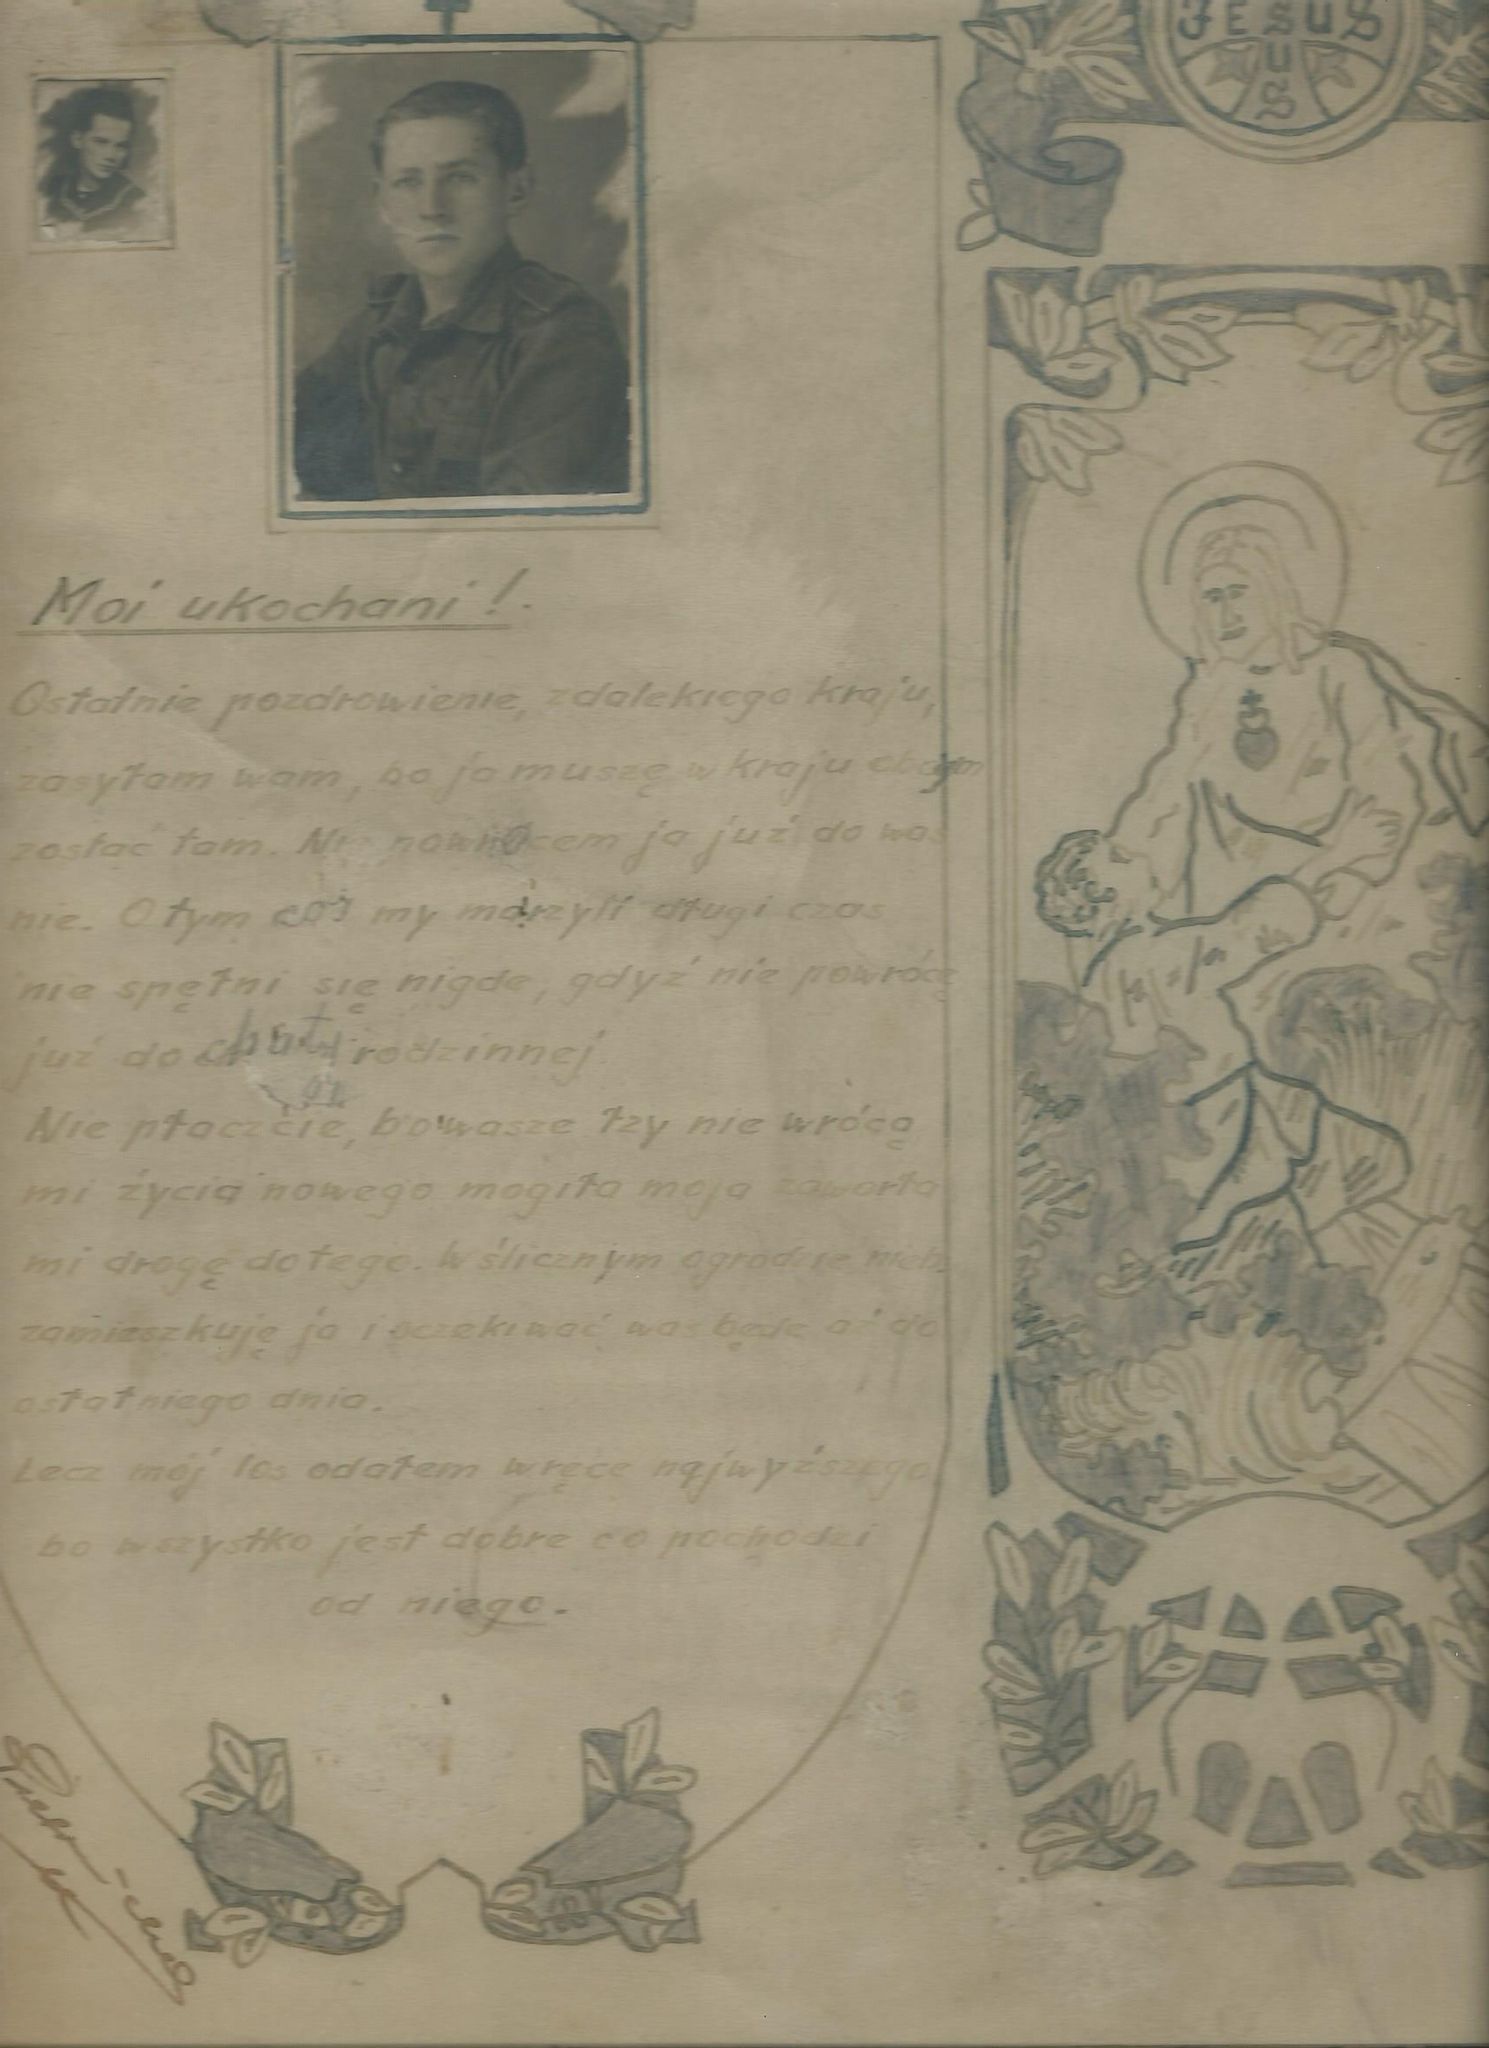 JESUS
US
Moi ukochani!.
Ostatnie pozdrowienie, zdalekiego kraju,
zasyłam wam, bo ja muszę w kraju obcym
zostać tam. Nie powrócem ja już do was
nie. O tym coś my marzyli długi czas
nie spęłni się nigde, gdyż nie powrócę
już do chaty rodzinnej
Nie płaczcie, bo wasze łzy nie wrócą
mi życia nowego mogiła moja zawarła
mi drogę do tego. W ślicznym ogrodzie nieb.
zamieszkuję ja i oczekiwać was będę aż do
ostatniego dnia.
Lecz mój los odałem wręce najwyższego
bo wszystko jest dobre co pochodzi
od niego.